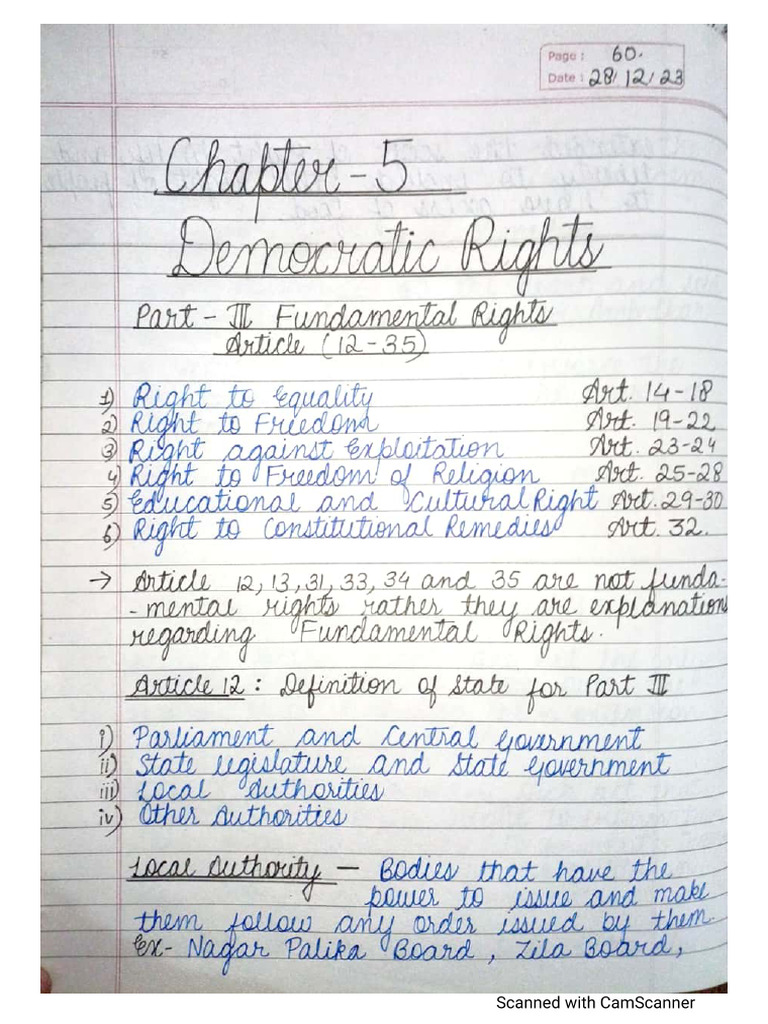 Page: 60.
Date: 28/12/23
Chapter-5
Democratic Rights
Part-III Fundamental Rights
Article (12-35)
1) Right to Equality Art. 14-18
2) Right to Freedom Art. 19-22
3) Right against Exploitation Art. 23-24
4) Right to Freedom of Religion Art. 25-28
5) Educational and Cultural Right Art. 29-30
6) Right to Constitutional Remedies Art. 32.
→ Article 12, 13, 31, 33, 34 and 35 are not funda-
-mental rights rather they are explanations
regarding Fundamental Rights.
Article 12: Definition of State for Part III
i) Parliament and Central Government
ii) State legislature and State Government
iii) Local Authorities
iv) Other Authorities
Local Authority - Bodies that have the
power to issue and make
them follow any order issued by them.
Ex- Nagar Palika Board, Zila Board,
Scanned with CamScanner